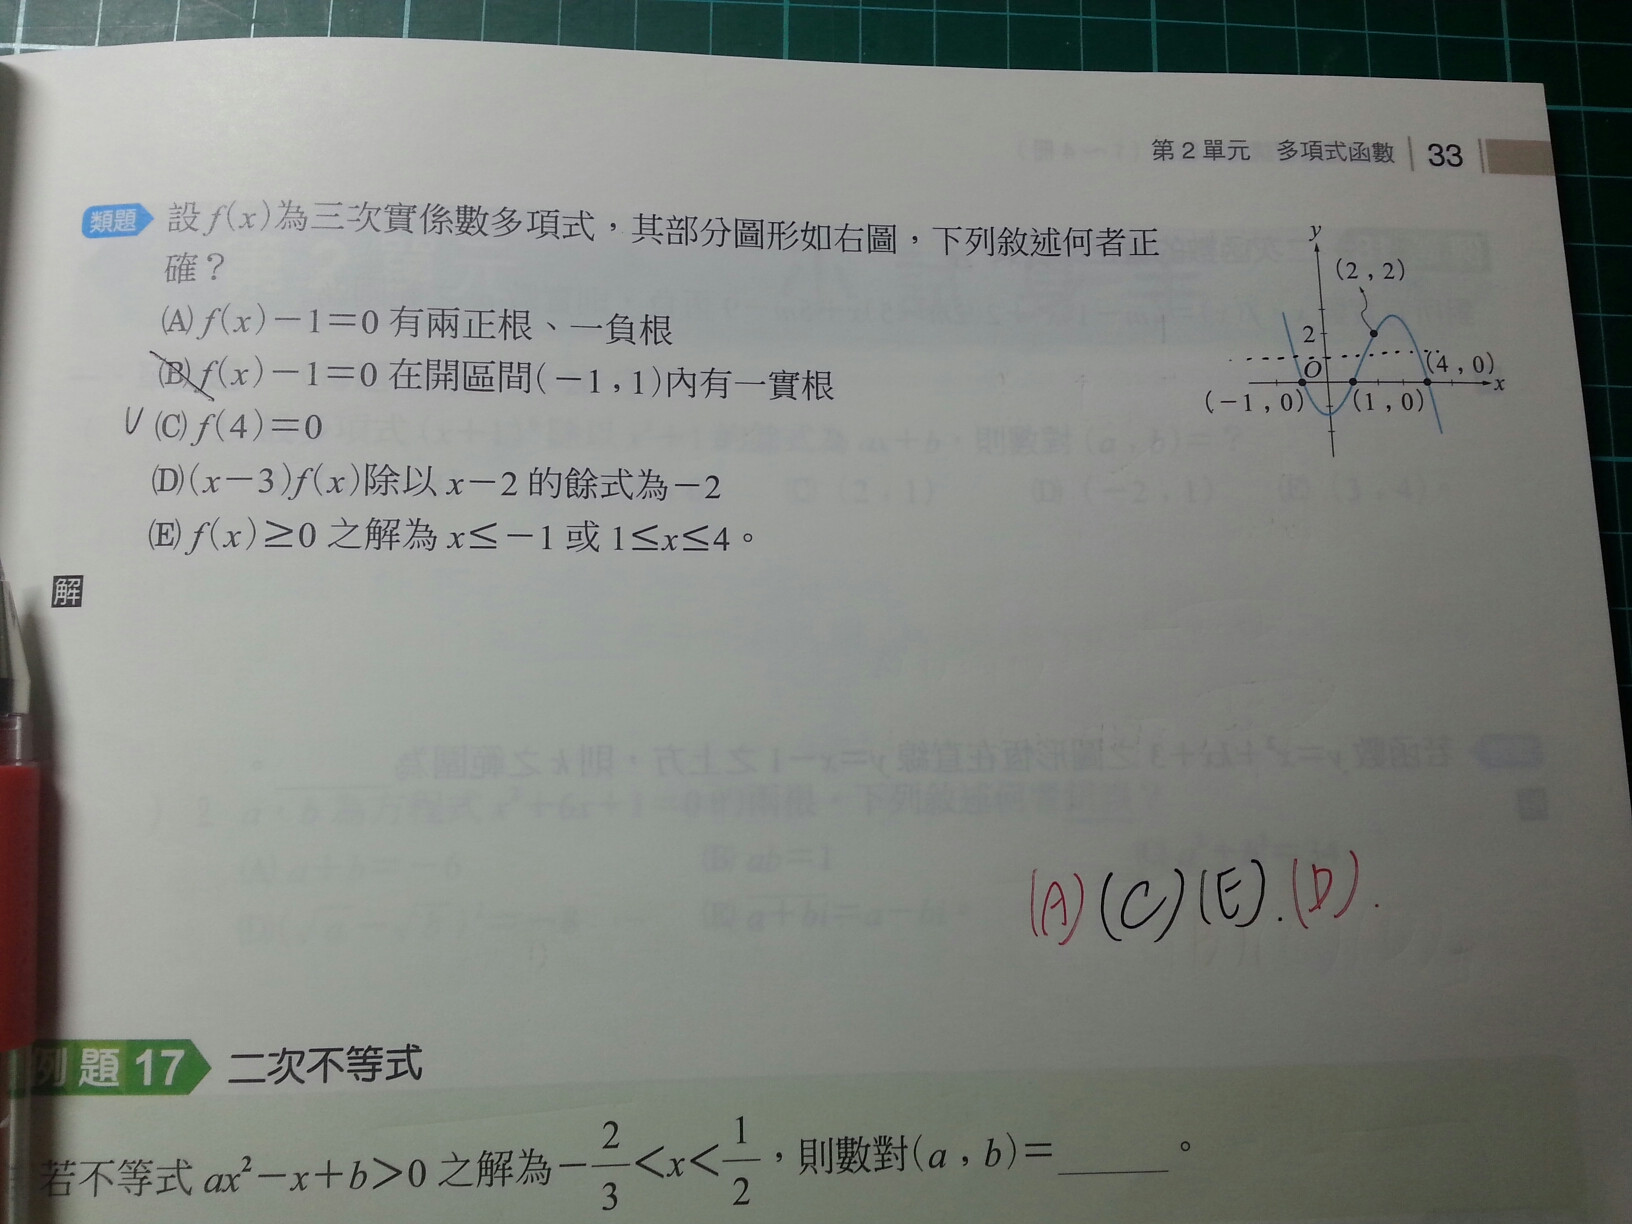 第2單元 多項式函數 33
類題 設f(x)為三次實係數多項式,其部分圖形如右圖,下列敘述何者正
確?
(A) f(x)-1=0 有兩正根、一負根
(B) f(x)-1=0 在開區間(-1,1)內有一實根
(C) f(4)=0
(D) (x-3)f(x)除以 x-2 的餘式為-2
(E) f(x)≥0 之解為 x≤-1 或 1≤x≤4。
y
(2,2)
2
O
(4,0)
x
(-1,0)
(1,0)
解
(A)(C)(E).(D).
例題 17 二次不等式
若不等式 ax²-x+b>0 之解為 -2/3<x<1/2,則數對(a,b)=______。